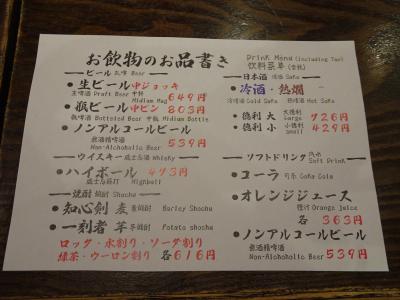 お飲物のお品書き
Drink Menu (including Tax)
飲料菜单 (含税)
ビール 瓦啤 Beer
・生ビール 中ジョッキ
生啤酒 Draft Beer 中杯 649円
Midium Mug
・瓶ビール 中ビン 803円
瓶啤酒 Bottoled Beer 中瓶 Midium Bottle
・ノンアルコールビール
無酒精啤酒
Non-Alchoholic Beer 539円
ウイスキー 威士忌酒 Whisky
・ハイボール 473円
威士忌蘇打 Highball
焼酎 焼酎 Shochu
・知心剣 麦 麦焼酎 Barley Shochu
・一刻者 芋 芋焼酎 Potato shochu
ロック・水割り・ソーダ割り
緑茶・ウーロン割り 各616円
日本酒 清酒 Sake
・冷酒・熱燗
冷清酒 Cold Sake 熱清酒 Hot Sake
・徳利 大 大徳利 Large 726円
・徳利 小 小徳利 small 429円
ソフトドリンク 汽水 Soft Drink
・コーラ 可乐 Coka Cola
・オレンジジュース
橙汁 Orange Juice
各 363円
・ノンアルコールビール
無酒精啤酒
Non-Alchoholic Beer 539円